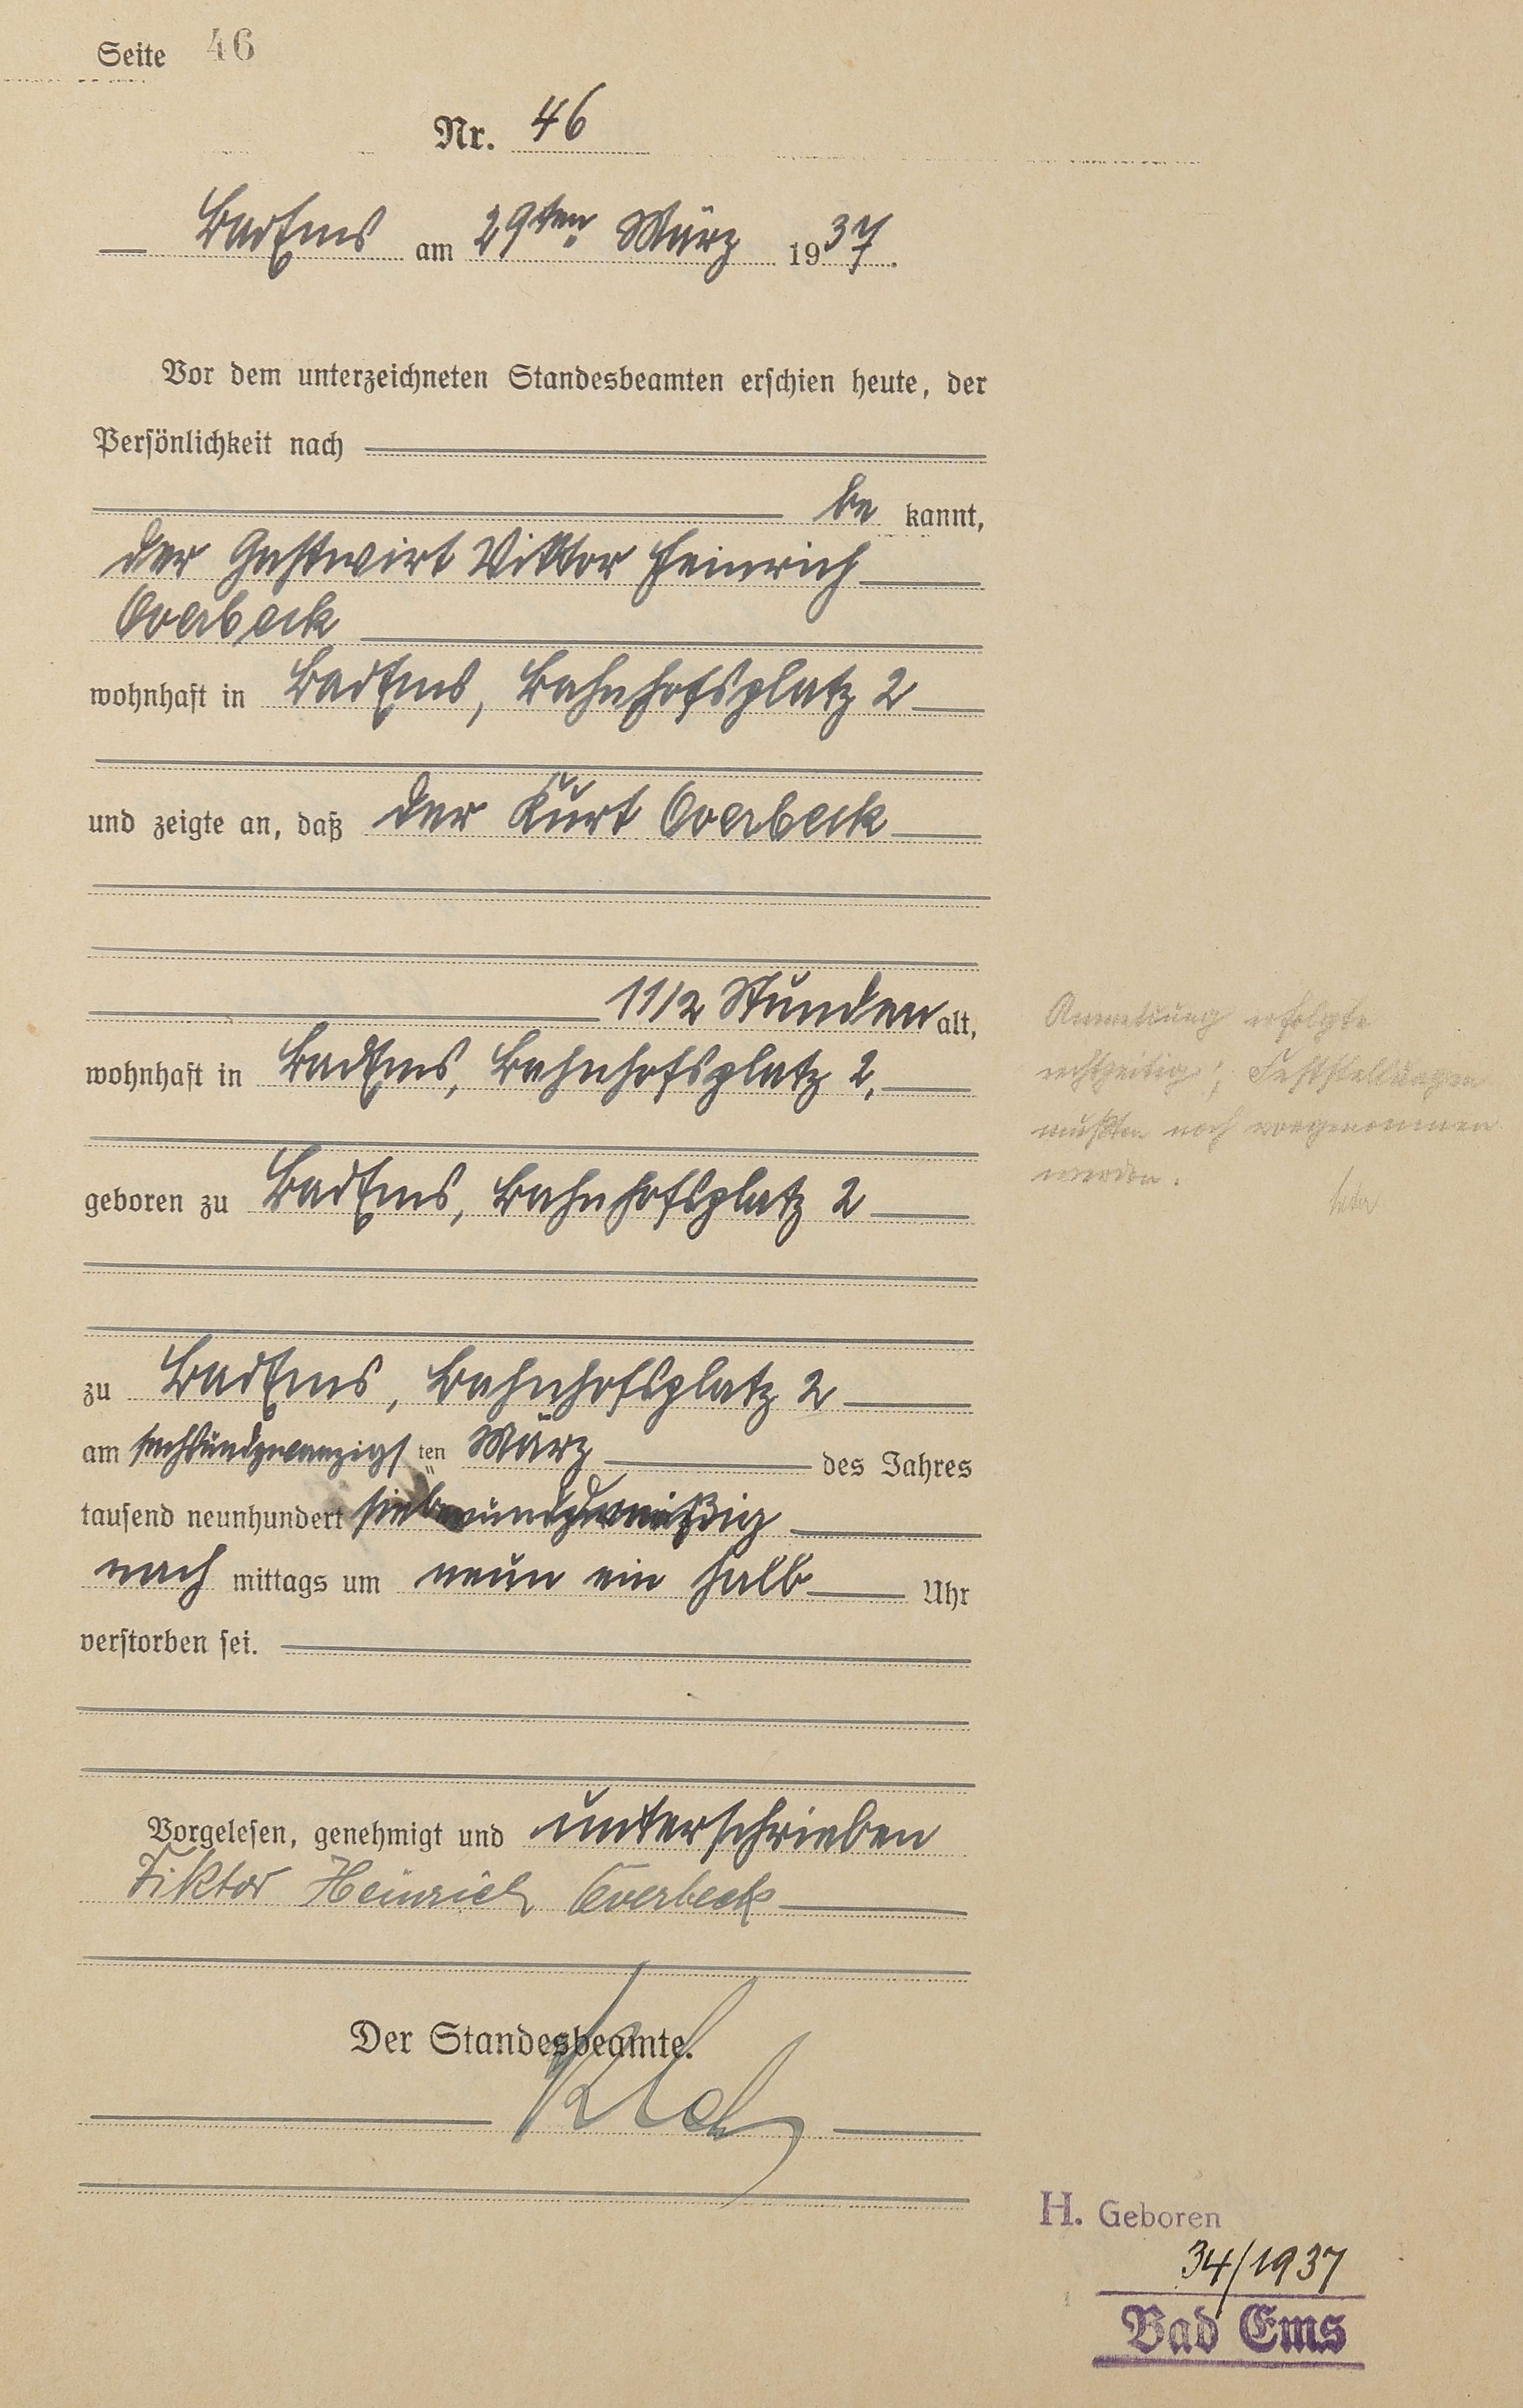 Seite 46
Nr. 46
Bad Ems am 29ten März 1937.
Vor dem unterzeichneten Standesbeamten erschien heute, der
Persönlichkeit nach
be kannt,
der Gastwirt Viktor Heinrich
Overbeck
wohnhaft in Bad Ems, Bahnhofsplatz 2
und zeigte an, daß der Kurt Overbeck
1 1/2 Stunden alt,
wohnhaft in Bad Ems, Bahnhofsplatz 2,
geboren zu Bad Ems, Bahnhofsplatz 2
zu Bad Ems, Bahnhofsplatz 2
am sechsundzwanzigsten März des Jahres
tausend neunhundert siebenunddreißig
nach mittags um neun ein halb Uhr
verstorben sei.
Vorgelesen, genehmigt und unterschrieben
Viktor Heinrich Overbeck
Der Standesbeamte.
Anmeldung erfolgte
rechtzeitig; Feststellungen
mußten noch vorgenommen
werden.
H. Geboren
34/1937
Bad Ems